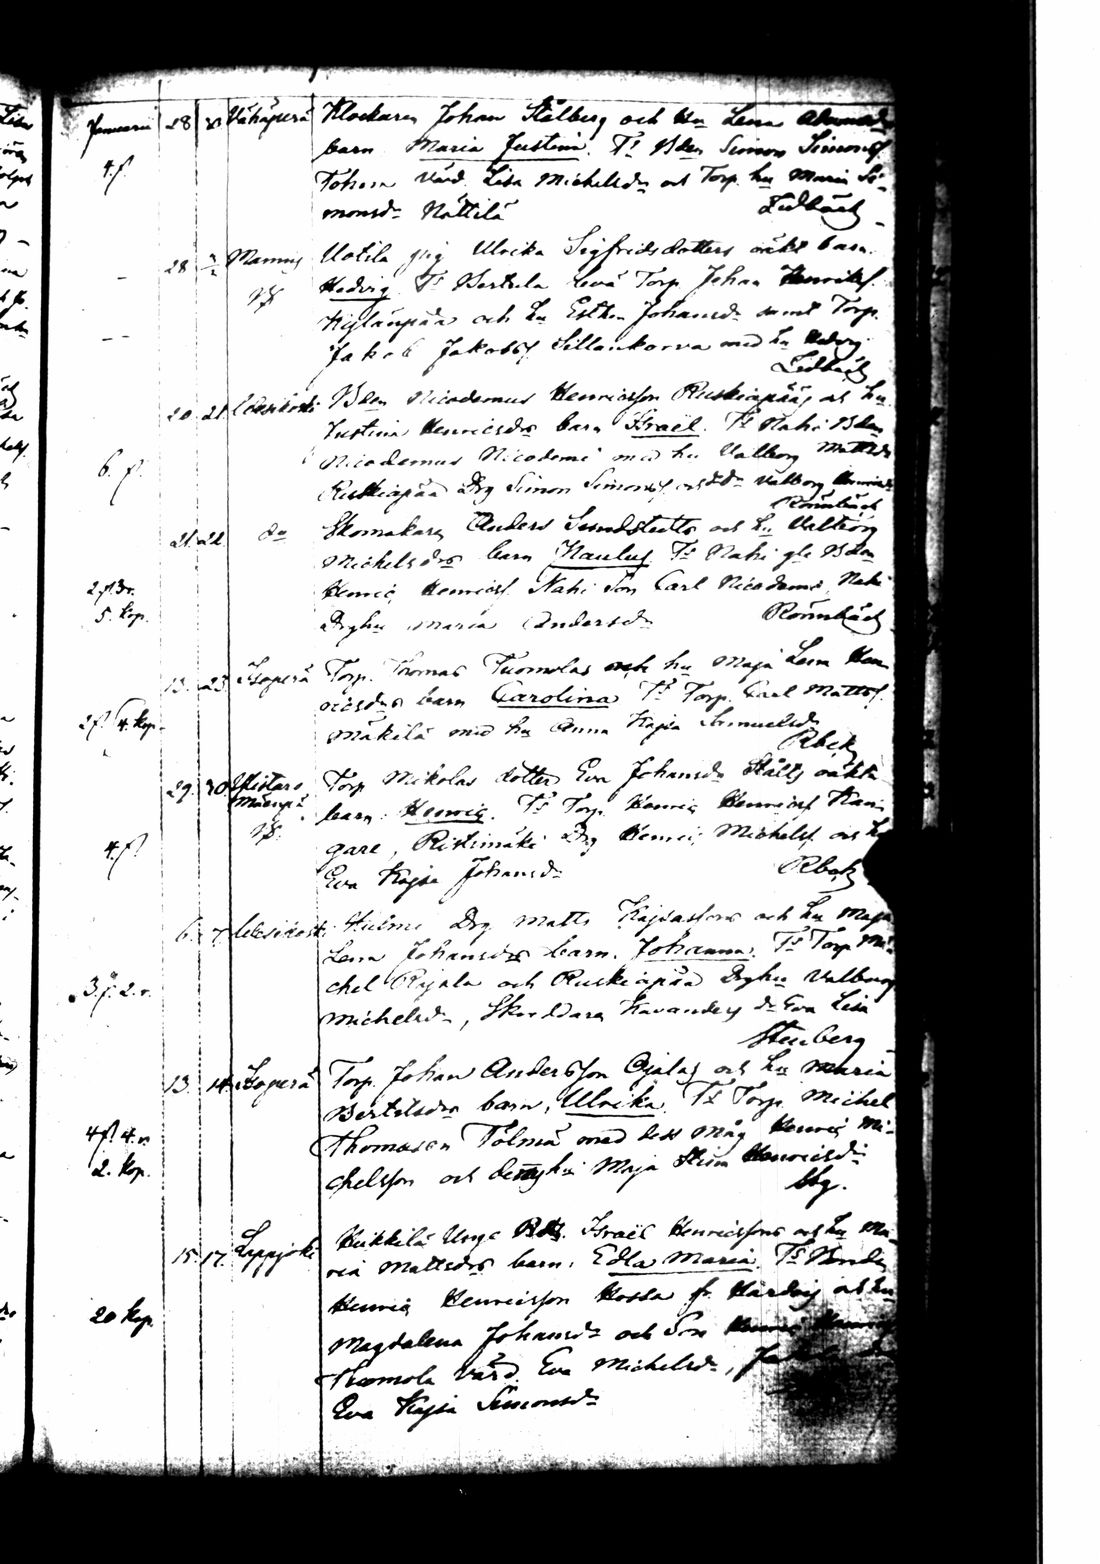 Januarii 28 Vähäperä Klockaren Johan Stålberg och hu Lena
barn Maria Justina. Ts Bden Simon Simonss.
4. f. Tohma Värd. Lisa Michelsdr och Torp. hu Maria Si-
monsdr Nättilä Lidbäck
28 Mannis Uotila pig Ulrika Sigfridsdotters oäkt barn.
Hedvig. Ts Bertula Torp. Johan Henrikss.
Kylänpää och hu Esther Johansdr samt Torp.
Jakob Jakobss. Sillankorva med hu Hedvig.
Lidbäck
20. 21. Bden Nicodemus Henricsson Ruskiapääs och hu
Justina Henricsdrs barn Israël. Ts Nahi Bden
6. f. Nicodemus Nicodemi med hu Valborg Mattsdr
Ruskiapää Drg Simon Simonss. och Valborg
Rönnbäck
21. 22. do Skomakaren Anders Sundstedts och hu Valborg
Michelsdrs barn Paulus. Ts Nahi gle Bden
2 f. 3 r. Henric Henricss. Nahi Son Carl Nicodemi Nahi
5. kop. Drghu Maria Andersdr Rönnbäck
13. 23. Isoperä Torp. Thomas Tuomolas och hu Maja Lena Hen-
ricsdrs barn Carolina Ts Torp. Carl Mattss.
2 f. 4. kop. Mäkilä med hu Anna Kajsa Samuelsdr
Rbck
29. 30. Torp Mikolas dotter Eva Johansdr Ståhls oäkta
barn. Henric. Ts Torp. Henric Henricss. Kan-
4. f. gare, Ristimäki Drg Henric Michelss. och hu
Eva Kajsa Johansdr Rbck
6. 7. Hulmi Drg Matts Kajsassons och hu Maja
Lena Johansdrs barn. Johanna. Ts Torp. Mi-
3. f. 2. r. chel Rajala och Ruskiapää Drghu Valborg
Michelsdr, Skorddare Kavanders dr Eva Lisa
Stenberg
13. 14. Isoperä Torp. Johan Andersson Ojalas och hu Maria
Bertilsdrs barn, Ulrika. Ts Torp. Michel
4 f. 4. r. Thomason Tolmä med dess måg Henric Mi-
2. kop. chelsson och hu Maja Stina Henricsdr
Sbg.
15. 17. Leppjoki Heikkilä Unge Bds. Israël Henricssons och hu Ma-
ria Mattsdrs barn. Edla Maria. Ts Bonden
Henric Henricsson Hossa fr. Härdvij och hu
20 kop. Magdalena Johansdr och Son Henric
Tuomola Värd. Eva Michelsdr,
Eva Kajsa Simonsdr